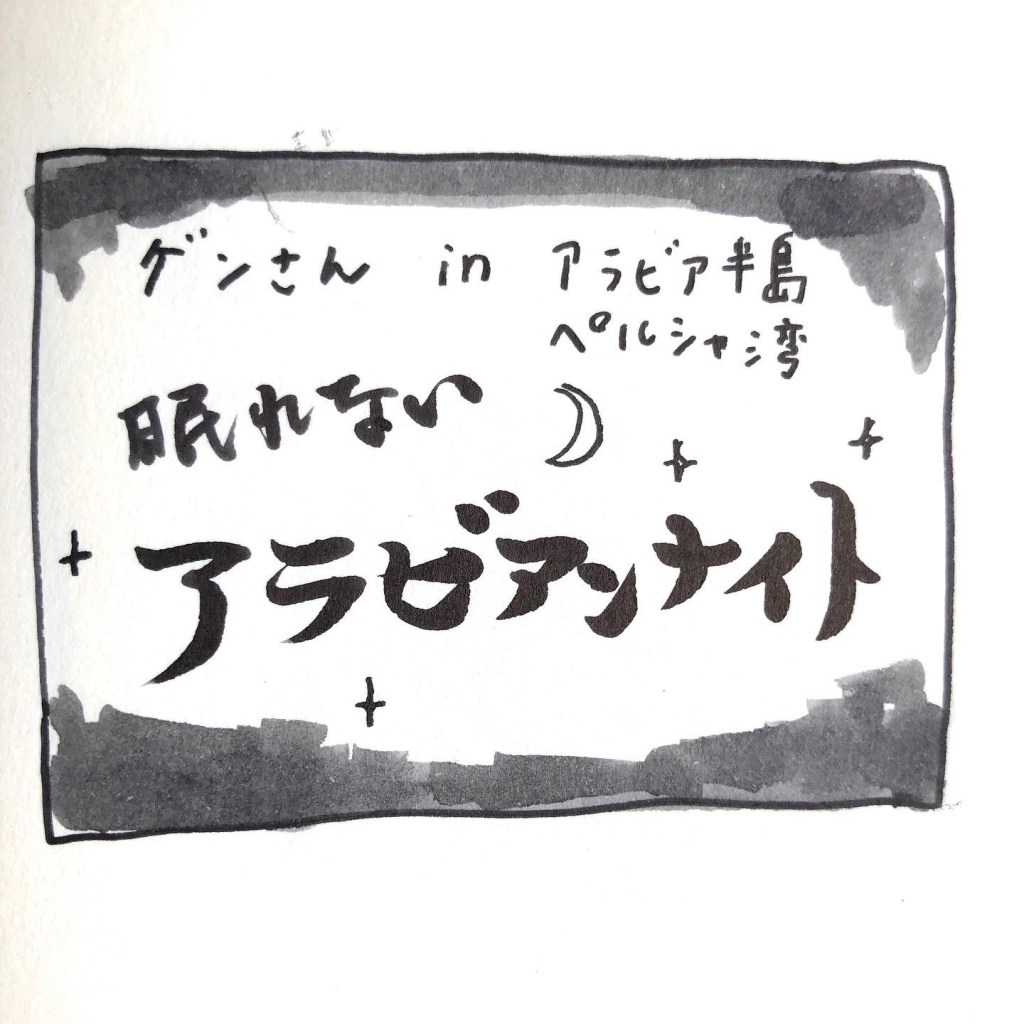 ゲンさん in アラビア半島
ペルシャ湾
眠れない
アラビアンナイト